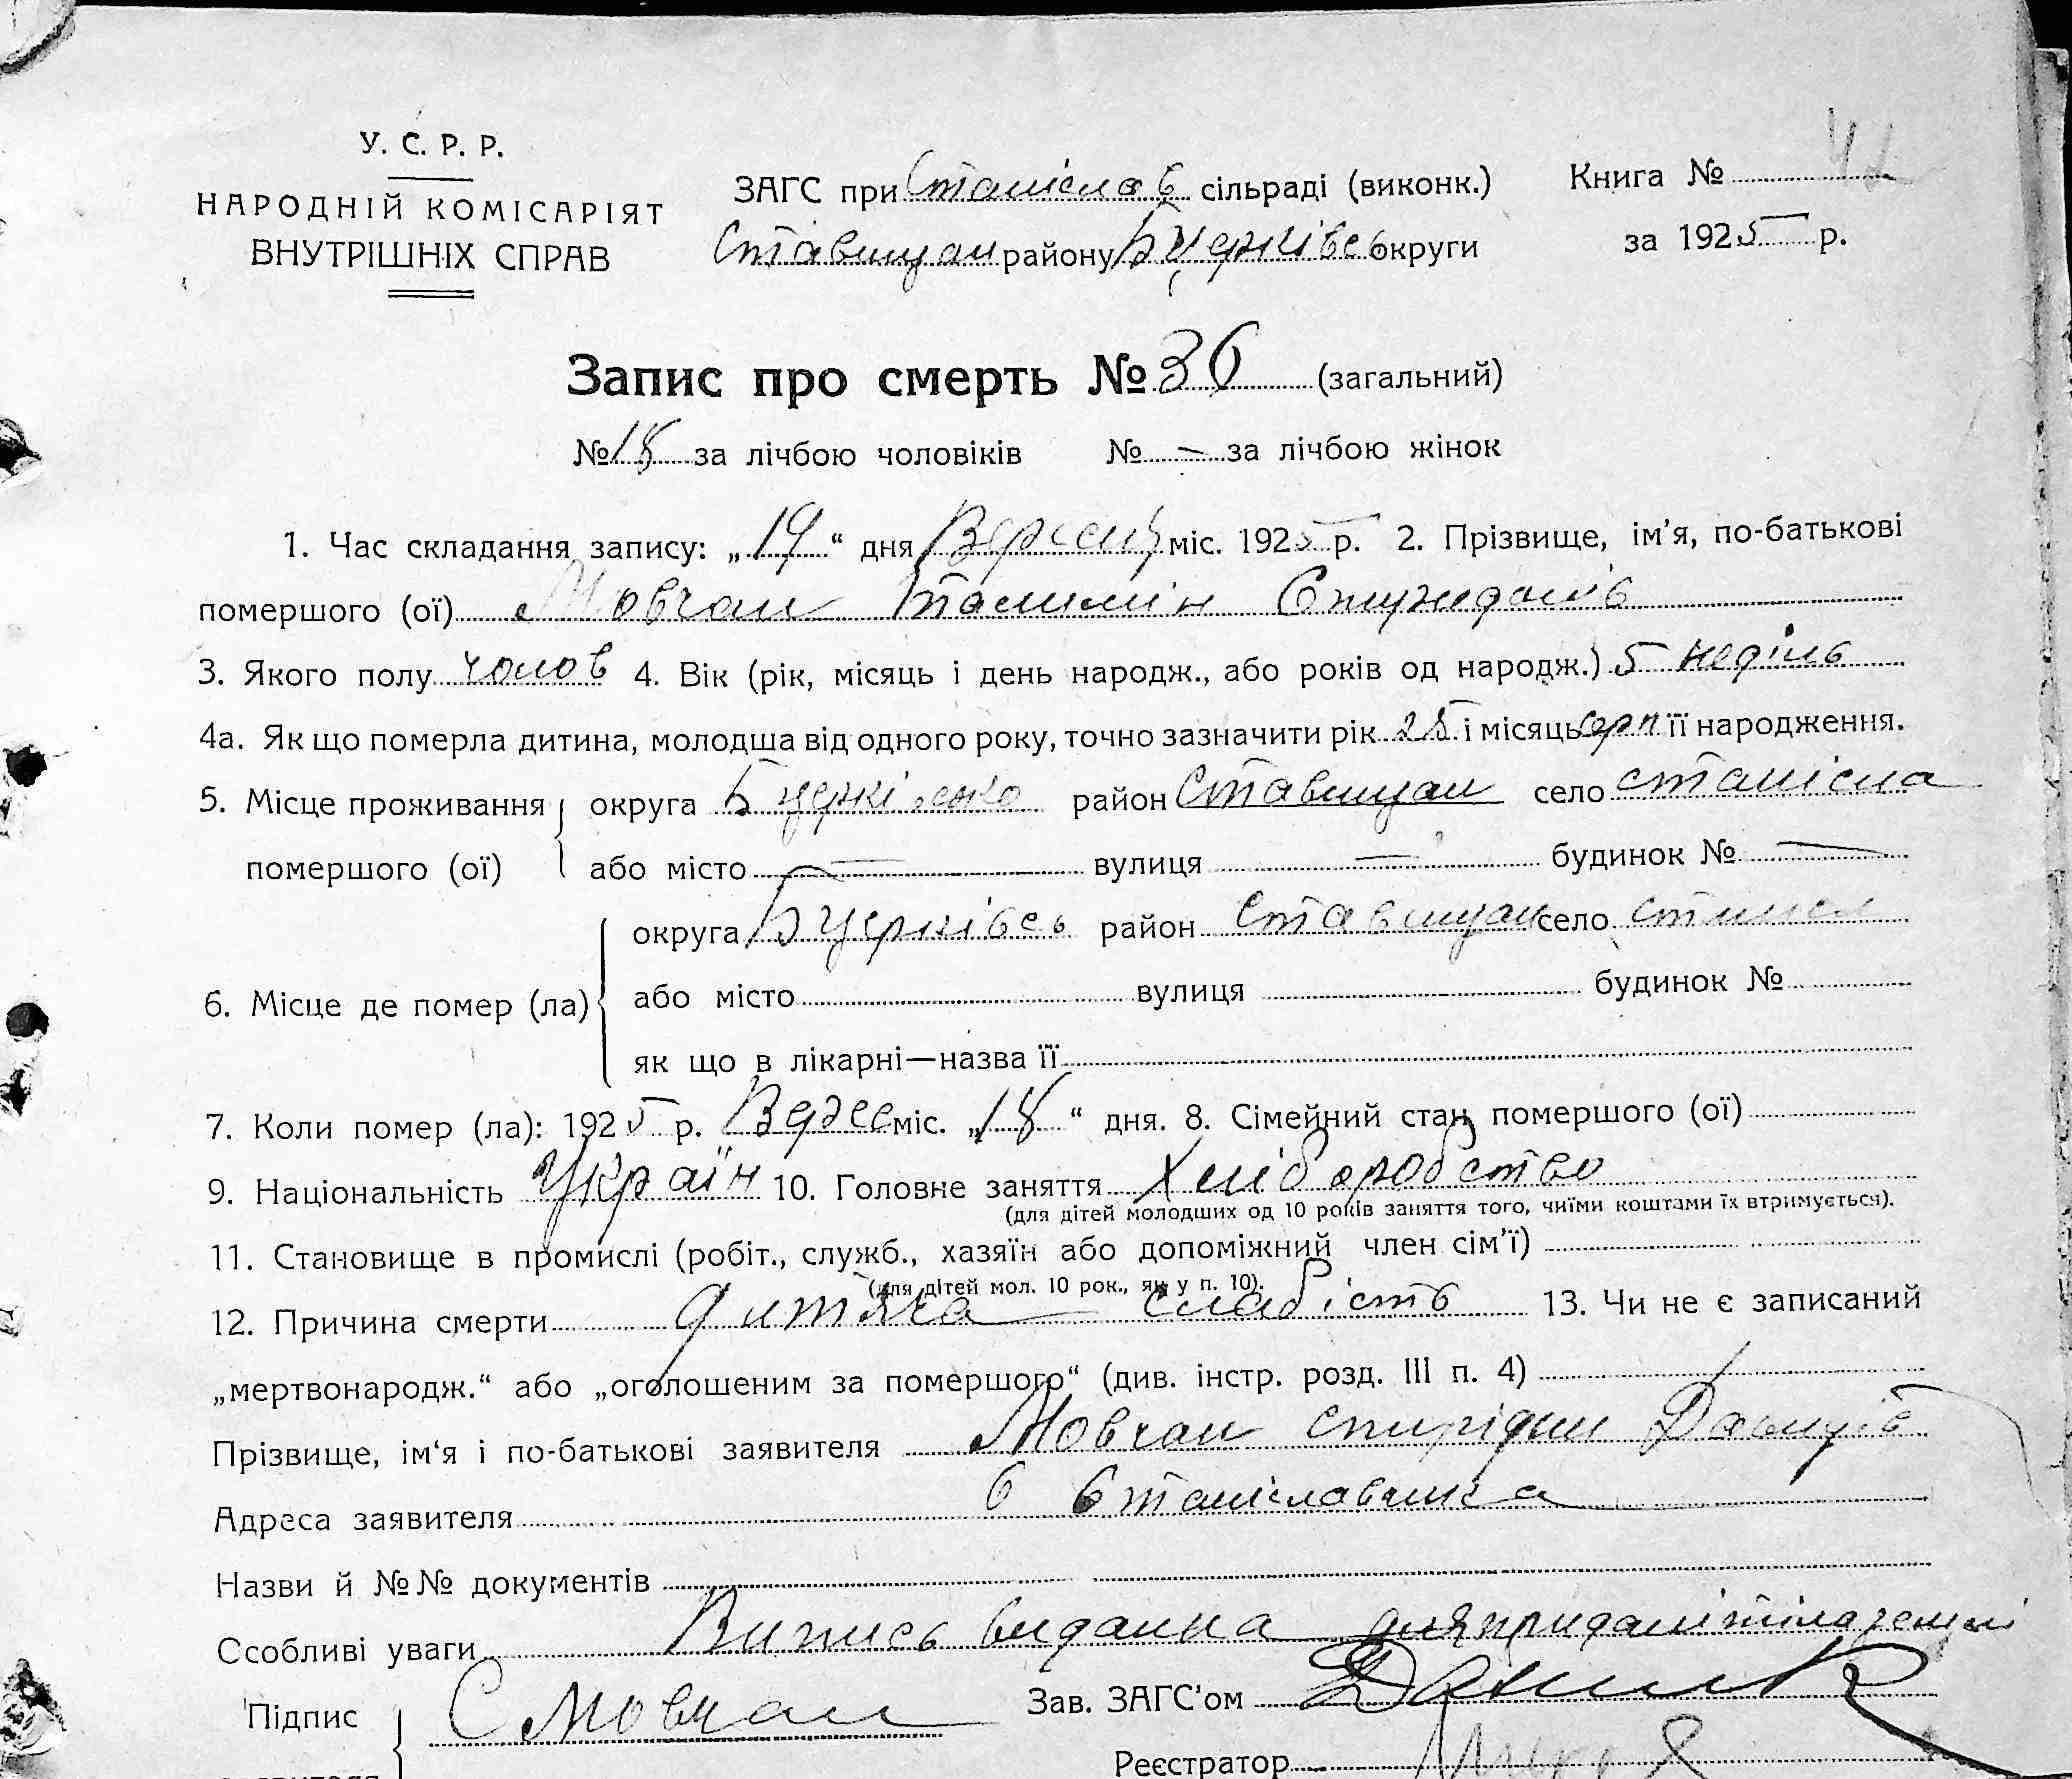 У. С. Р. Р.
НАРОДНІЙ КОМІСАРІЯТ
ВНУТРІШНІХ СПРАВ
ЗАГС при Станіслав сільраді (виконк.)
Ставищан району Бцерківсь округи
Книга № 42
за 1925 р.
Запис про смерть № 36 (загальний)
№ 18 за лічбою чоловіків № — за лічбою жінок
1. Час складання запису: „19“ дня Вересня міс. 1925 р. 2. Прізвище, ім'я, по-батькові
помершого (ої) Мовчан
3. Якого полу чолов 4. Вік (рік, місяць і день народж., або років од народж.) 5 неділь
4а. Як що померла дитина, молодша від одного року, точно зазначити рік 25 і місяць серп її народження.
5. Місце проживання округа район Ставищан село Станісла
помершого (ої) або місто — вулиця — будинок № —
округа Бцерківсь район Ставищан село
6. Місце де помер (ла) або місто вулиця будинок №
як що в лікарні—назва її
7. Коли помер (ла): 1925 р. Верес міс. „18“ дня. 8. Сімейний стан помершого (ої)
9. Національність Україн 10. Головне заняття Хліборобство
(для дітей молодших од 10 років заняття того, чиїми коштами їх втримується).
11. Становище в промислі (робіт., служб., хазяїн або допоміжний член сім'ї)
(для дітей мол. 10 рок., як у п. 10).
12. Причина смерти дитяча слабість 13. Чи не є записаний
„мертвонародж.“ або „оголошеним за помершого“ (див. інстр. розд. III п. 4)
Прізвище, ім'я і по-батькові заявителя Мовчан Спирідон
Адреса заявителя с Станіславчика
Назви й №№ документів
Особливі уваги Випись видана для придані тіла землі
Підпис С Мовчан
Зав. ЗАГС'ом
Реєстратор